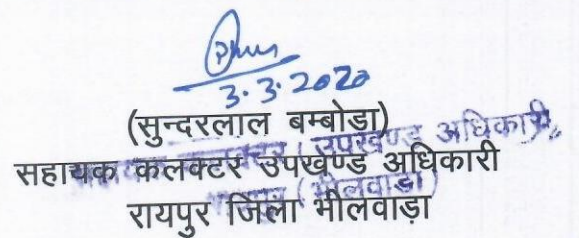 3.3.2020
(सुन्दरलाल बम्बोडा)
सहायक कलक्टर उपखण्ड अधिकारी
रायपुर जिला भीलवाड़ा
उपखण्ड अधिकारी
(भीलवाडा)